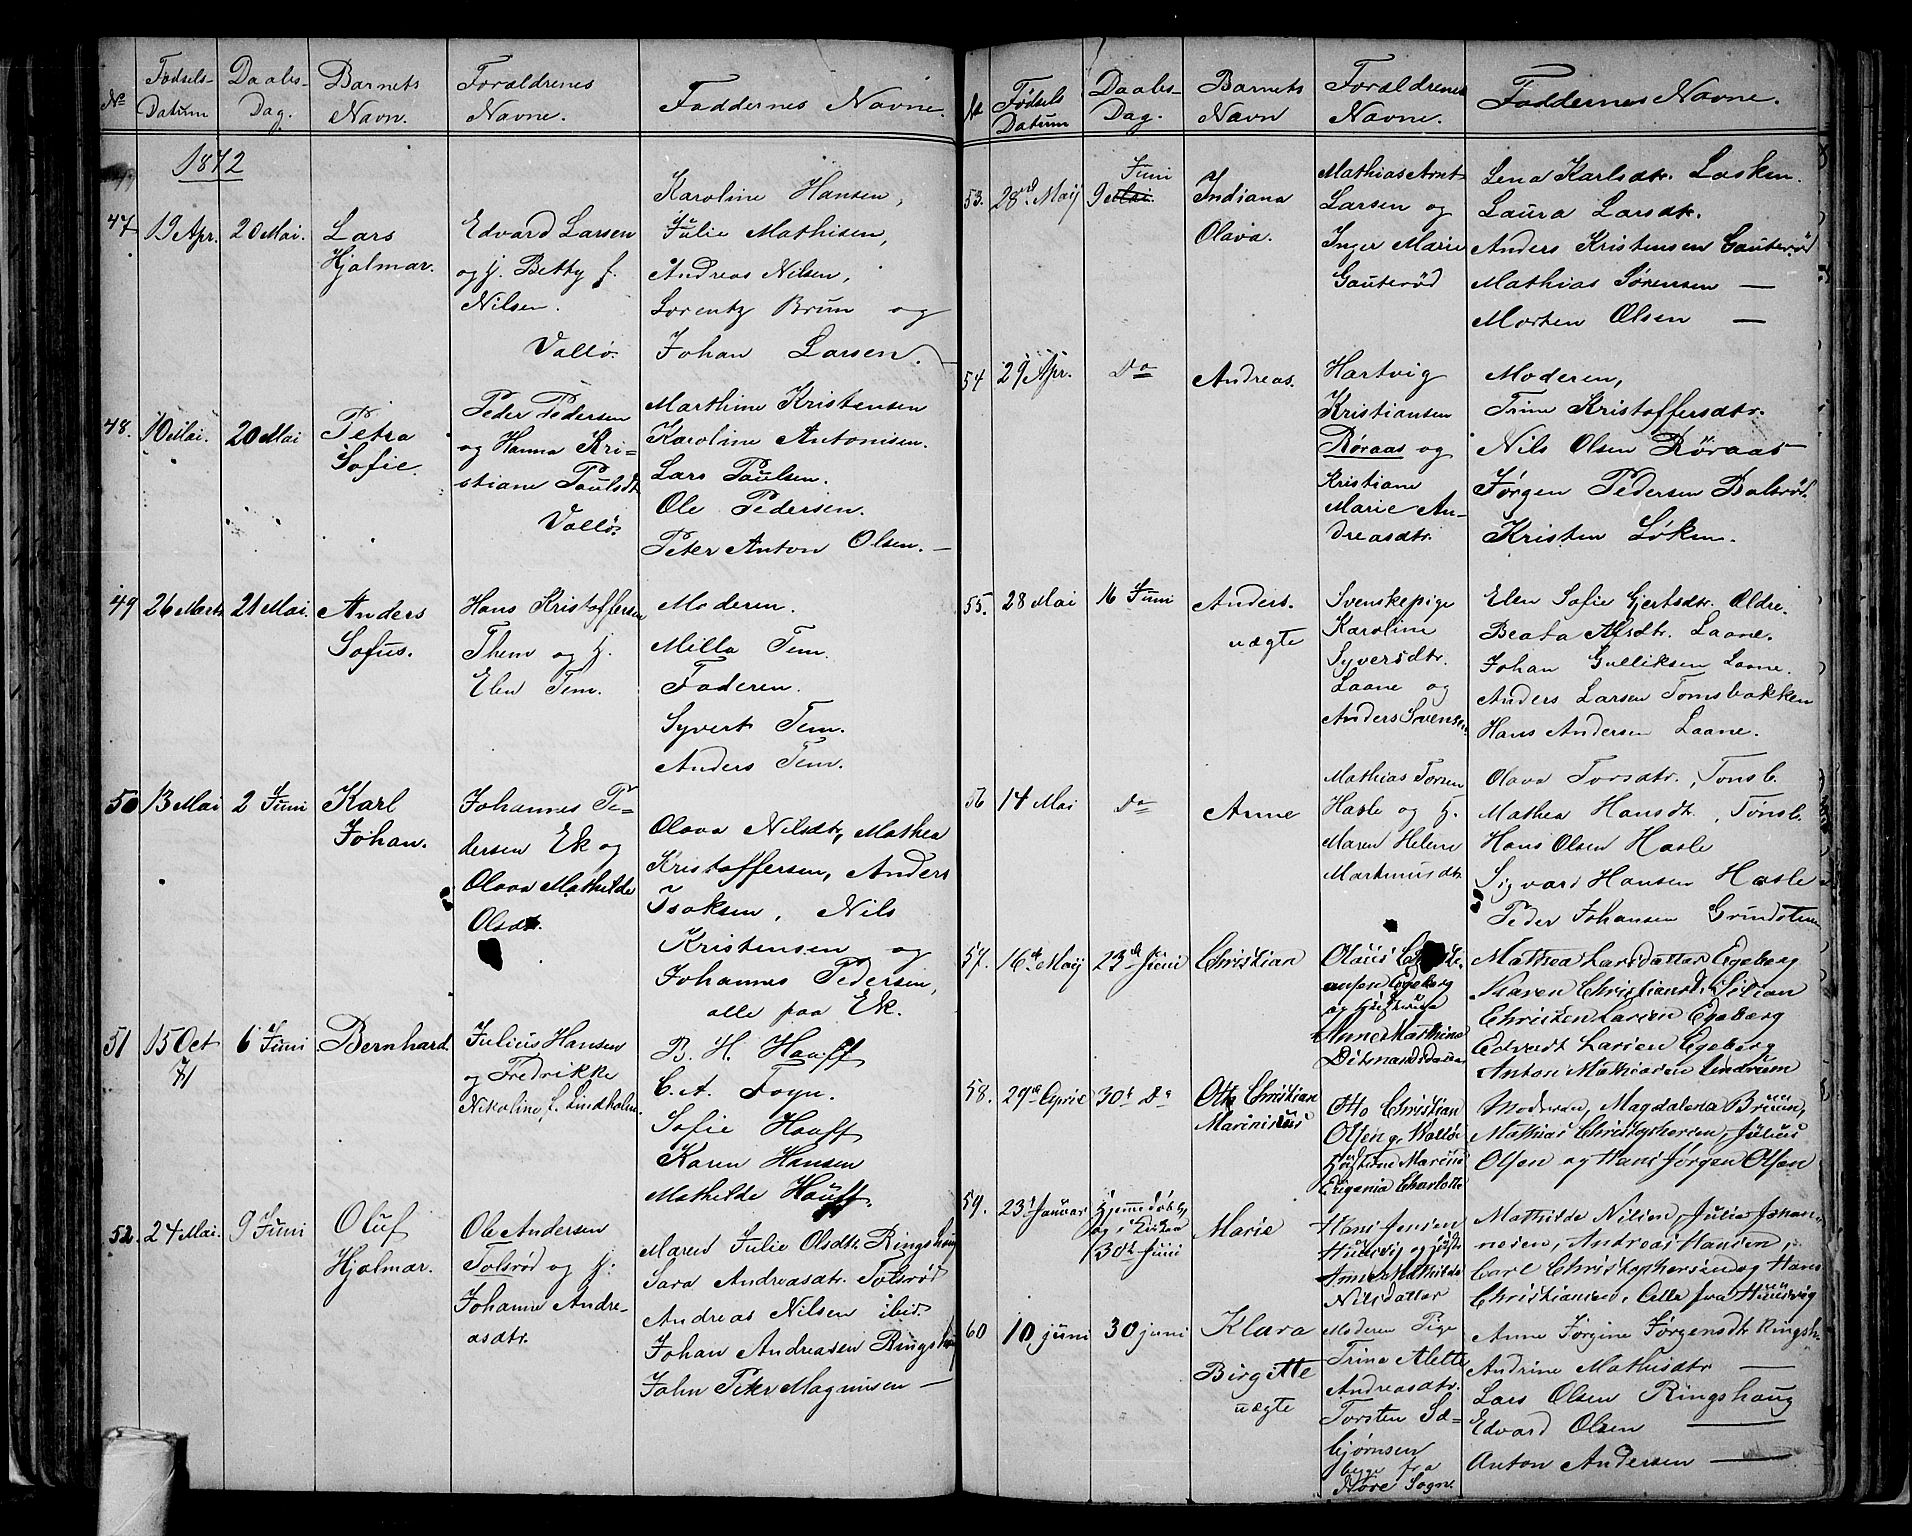 № Fødsels-Datum Daabs-Dag. Barnets Navn. Forældrenes Navne. Faddernes Navne.
1872
47 19 Apr. 20 Mai. Lars
Hjalmar.
Edvard Larsen
og h. Betty f.
Nilsen.
Vallø.
Karoline Hansen,
Julie Mathisen,
Andreas Nilsen,
Lorentz Brun og
Johan Larsen.
48. 10 Mai. 20 Mai Petra
Sofie.
Peder Pedersen
og Hanna Kri-
stiane Paulsdt
Vallø.
Marthine Kristensen
Karoline Antonisen.
Lars Paulsen.
Ole Pedersen.
Peter Anton Olsen. —
49 26 Marts 21 Mai. Anders
Sofus.
Hans Kristoffersen
Them og h.
Elen Tem.
Moderen.
Milla Tem.
Faderen.
Syvert Tem.
Anders Tem.
50 13 Mai 2 Juni Karl
Johan.
Johannes Pe-
dersen Ek og
Olava Mathilde
Olsdt.
Olava Nilsdtr, Mathea
Kristoffersen, Anders
Isaksen, Nils
Kristensen og
Johannes Pedersen,
alle paa Ek.
51 15 Oct
71
6 Juni Bernhard.
Julius Hansen
og Fredrikke
Nikoline f. Lindholm.
B. H. Hauff
C. A. Foyn.
Sofie Hauff
Karen Hansen
Mathilde Hauff.
52. 24 Mai. 9 Juni Oluf
Hjalmar.
Ole Andersen
Tolsrød og h.
Johanne Andre-
asdtr.
Maren Julie Olsdtr. Ringshaug
Sara Andreasdtr. Tolsrød
Andreas Nilsen ibid.
Johan Andreasen Ringshaug
John Peter Magnusen —
№ Fødsels Datum Daabs-Dag. Barnets Navn Forældrenes Navne. Faddernes Navne.
53. 28nd Maij 9 Mai. Juni
Indiana
Olava.
Mathias Arnt
Larsen og
Inger Marie
Gauterød
Lena Karlsdtr. Løsken.
Laura Larsdtr.
Anders Kristensen Gauterød
Mathias Sørensen —
Morten Olsen —
54 29 Apr. Do Andreas.
Hartvig
Kristiansen
Røraas og
Kristiane
Marie An-
dreasdtr.
Moderen,
Trine Kristoffersdtr.
Nils Olsen Røraas
Jørgen Pedersen Bolsrød.
Kristen Løken.
55. 28 Mai 16 Juni Anders.
uægte
Svenskepige
Karoline
Syversdtr.
Laane og
Anders Svensen.
Elen Sofie Gjertsdtr. Oldre.
Beata Alsdtr. Laane.
Johan Gulliksen Laane.
Anders Larsen Tomsbakken
Hans Andersen Laane.
56 14 Mai Do Anne
Mathias Torsen
Hasle og h.
Maren Helene
Markmusdtr
Olava Torsdtr., Tonsb.
Mathea Hansdtr., Tønsb.
Hans Olsen Hasle
Sigvard Hansen Hasle
Peder Johansen
57. 16de Maij 23de Juni Christian
Olaus Christi-
ansen Egeberg
og Hustrue
Anne Mathine
Mathea Larsdatter Egeberg
Maren Christiansd.
Christen Larsen Egeberg
Edvardt Larsen Egeberg
Anton Mathiasen Undrum
58. 29de April 30te Do Otto Christian
Marinisius
Otto Christian
Olsen
Hustrue Marine
Eugenia Charlotte
Moderen, Magdalena Bruun,
Mathias Christophersen, Julius
Olsen og Hans Jørgen Olsen
59. 23de Januar Hjemmedøbt
og i Kirken
30te Juni
Marie
Hans Jensen
Husvig og
Mathilde
Nilsdatter
Mathilde Nilsen, Julia Johan-
nesen, Andreas Hansen,
Carl Christophersen og Hans
Christiansen. Alle fra Huusvig
60 10 juni 30 juni Klara
Birgitte
uægte
Moderen Pige
Trine Alette
Andreasdtr.
Torsten Sæ-
bjørnsen
begge fra
Sogn.
Anne Jørgine Jørgensdtr Ringsh.
Andrine Mathisdtr —
Lars Olsen Ringshaug
Edvard Olsen —
Anton Andersen —